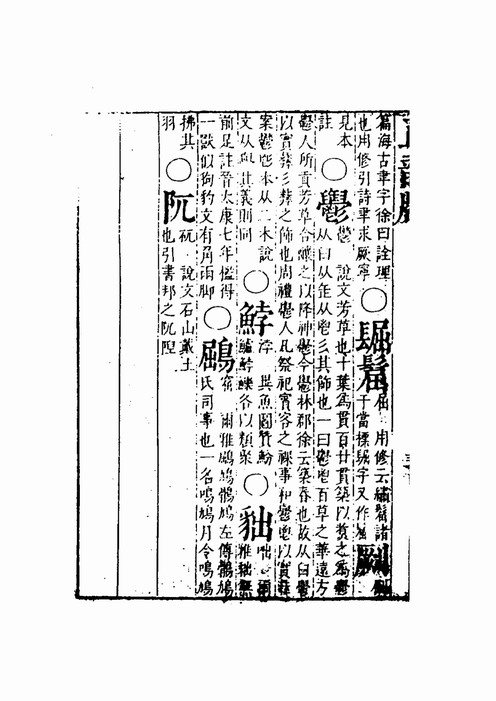 篇海古聿字徐曰詮理
也用修引詩聿求厥寧
○
屈 用修云繡
于當標
字又作
見本
註
○
鬱
鬱 說文芳草也十葉爲貫百廿貫築以煑之爲鬱
从臼从缶从鬯彡其飾也一曰鬱鬯百草之華遠方
鬱人所貢芳草合釀之以降神鬱今鬱林郡徐云築舂也故从臼鬱
以實彝彡彝之飾也周禮鬱人凡祭祀賓客之祼事和鬱鬯以實彝
案鬱鬯本从二木說
文从與其義則同
○
浡 異魚圖贊魵
鱸 各以類聚
○
貀
咄 爾
雅貀無
前足註晉太康七年檻得
一獸似狗豹文有角兩脚
○
鶌
窟 爾雅鶌鳩鶻鳩左傳鶻鳩
氏司事也一名鳴鳩月令鳴鳩
拂其
羽
○
阢
說文石山戴土
也引書邦之阢隉